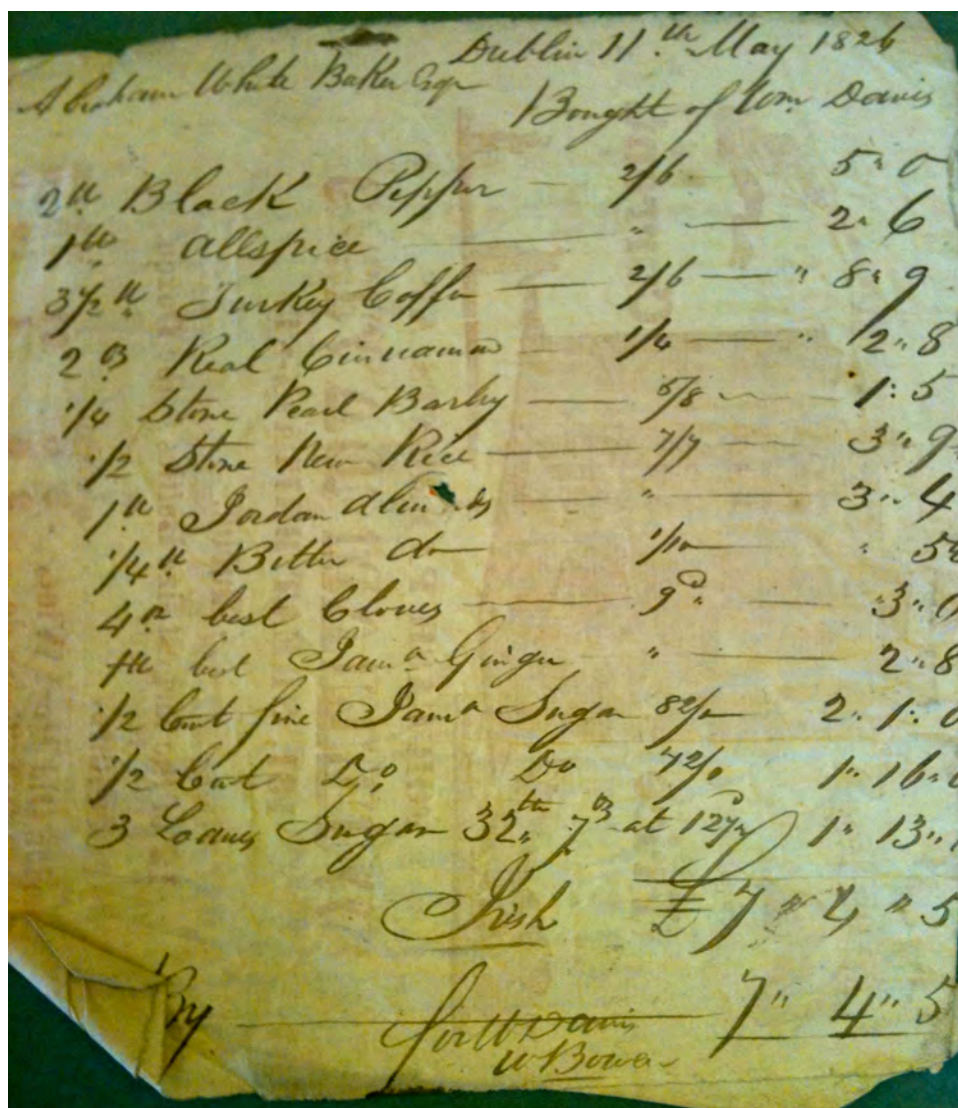 Dublin 11th May 1826
Abraham White Baker Esqr
Bought of Wm Davis
2 lb Black Pepper — 2/6 — 5 " 0
1 lb allspice — " — 2 " 6
3 1/2 lb Turkey Coffee — 2/6 — " 8 " 9
2 oz Real Cinnamon — 1/4 — " 2 " 8
1/4 Stone Pearl Barley — 5/8 — 1 : 5
1/2 Stone New Rice — 7/7 — 3 " 9
1 lb Jordan Almonds — " — 3 " 4
1/4 lb Bitter do — 1/10 — " 5
4 oz best Cloves — 9d " — " 3 " 0
1 lb best Jama Ginger " 2 " 8
1/2 Cwt fine Jama Sugar 82/ — 2 " 1 : 0
1/2 Cwt Do Do 72/0 1 " 16 "
3 Loaves Sugar 32 lb " 7 oz at 1 " 13 "
Irish £ 7 " 4 " 5
By — for W Davis 7 " 4 " 5
W Bower